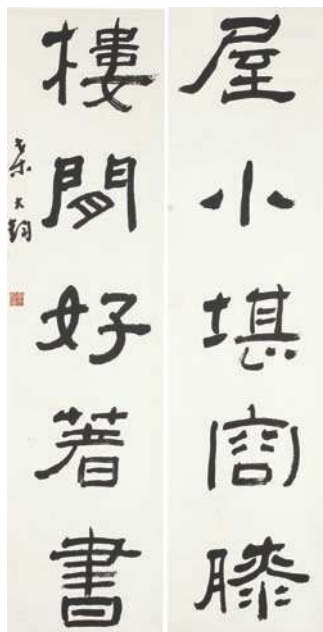 屋小堪容膝
樓閒好著書
大鈞